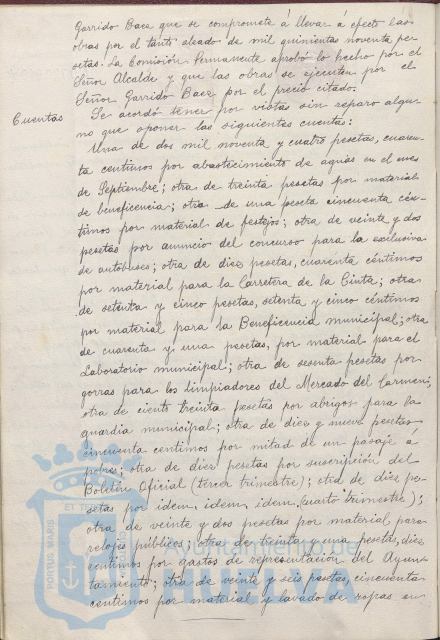 Garrido Baea que se compromete á llevar á efecto las
obras por el tanto alzado de mil quinientas noventa pe-
setas. La Comisión Permanente aprobó lo hecho por el
Señor Alcalde y que las obras se ejecuten por el
Señor Garrido Baez por el precio citado.
Cuentas
Se acordó tener por vistas sin reparo algu-
no que oponer las siguientes cuentas:
Una de dos mil noventa y cuatro pesetas, cuaren-
ta centimos por abastecimiento de aguas en el mes
de Septiembre; otra de treinta pesetas por material
de beneficencia; otra de una peseta cincuenta cén-
timos por material de festejos; otra de veinte y dos
pesetas por anuncio del concurso para la exclusiva
de autobuses; otra de diez pesetas, cuarenta céntimos
por material para la Carretera de la Cinta; otra
de setenta y cinco pesetas, setenta y cinco céntimos
por material para la Beneficencia municipal; otra
de cuarenta y una pesetas, por material para el
Laboratorio municipal; otra de sesenta pesetas por
gorras para los limpiadores del Mercado del Carmen;
otra de ciento treinta pesetas por abrigos para la
guardia municipal; otra de diez y nueve pesetas
cincuenta centimos por mitad de un pasaje a
pobre; otra de diez pesetas por suscripción del
Boletin Oficial (tercer trimestre); otra de diez pe-
setas por idem, idem, idem, (cuarto trimestre);
otra de veinte y dos pesetas por material para
relojes públicos; otra de treinta y una pesetas, diez
centimos por gastos de representación del Ayun-
tamiento; otra de veinte y seis pesetas, cincuenta
centimos por material y lavado de ropas en
PORTUS MARIS
ET TERRAE
CUSTODIA
Ayuntamiento de
HUELVA